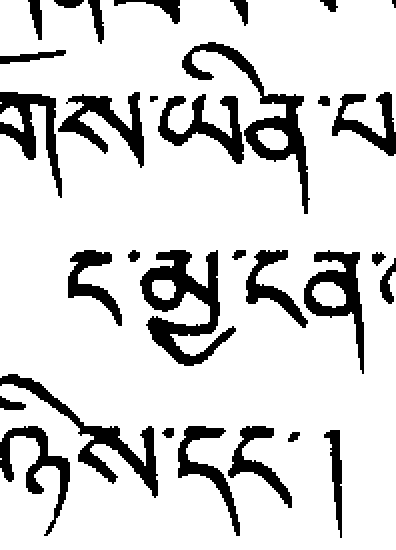 གས་ཡིན་པ
ང་མྱ་ངན་
ཉིས་དང་།